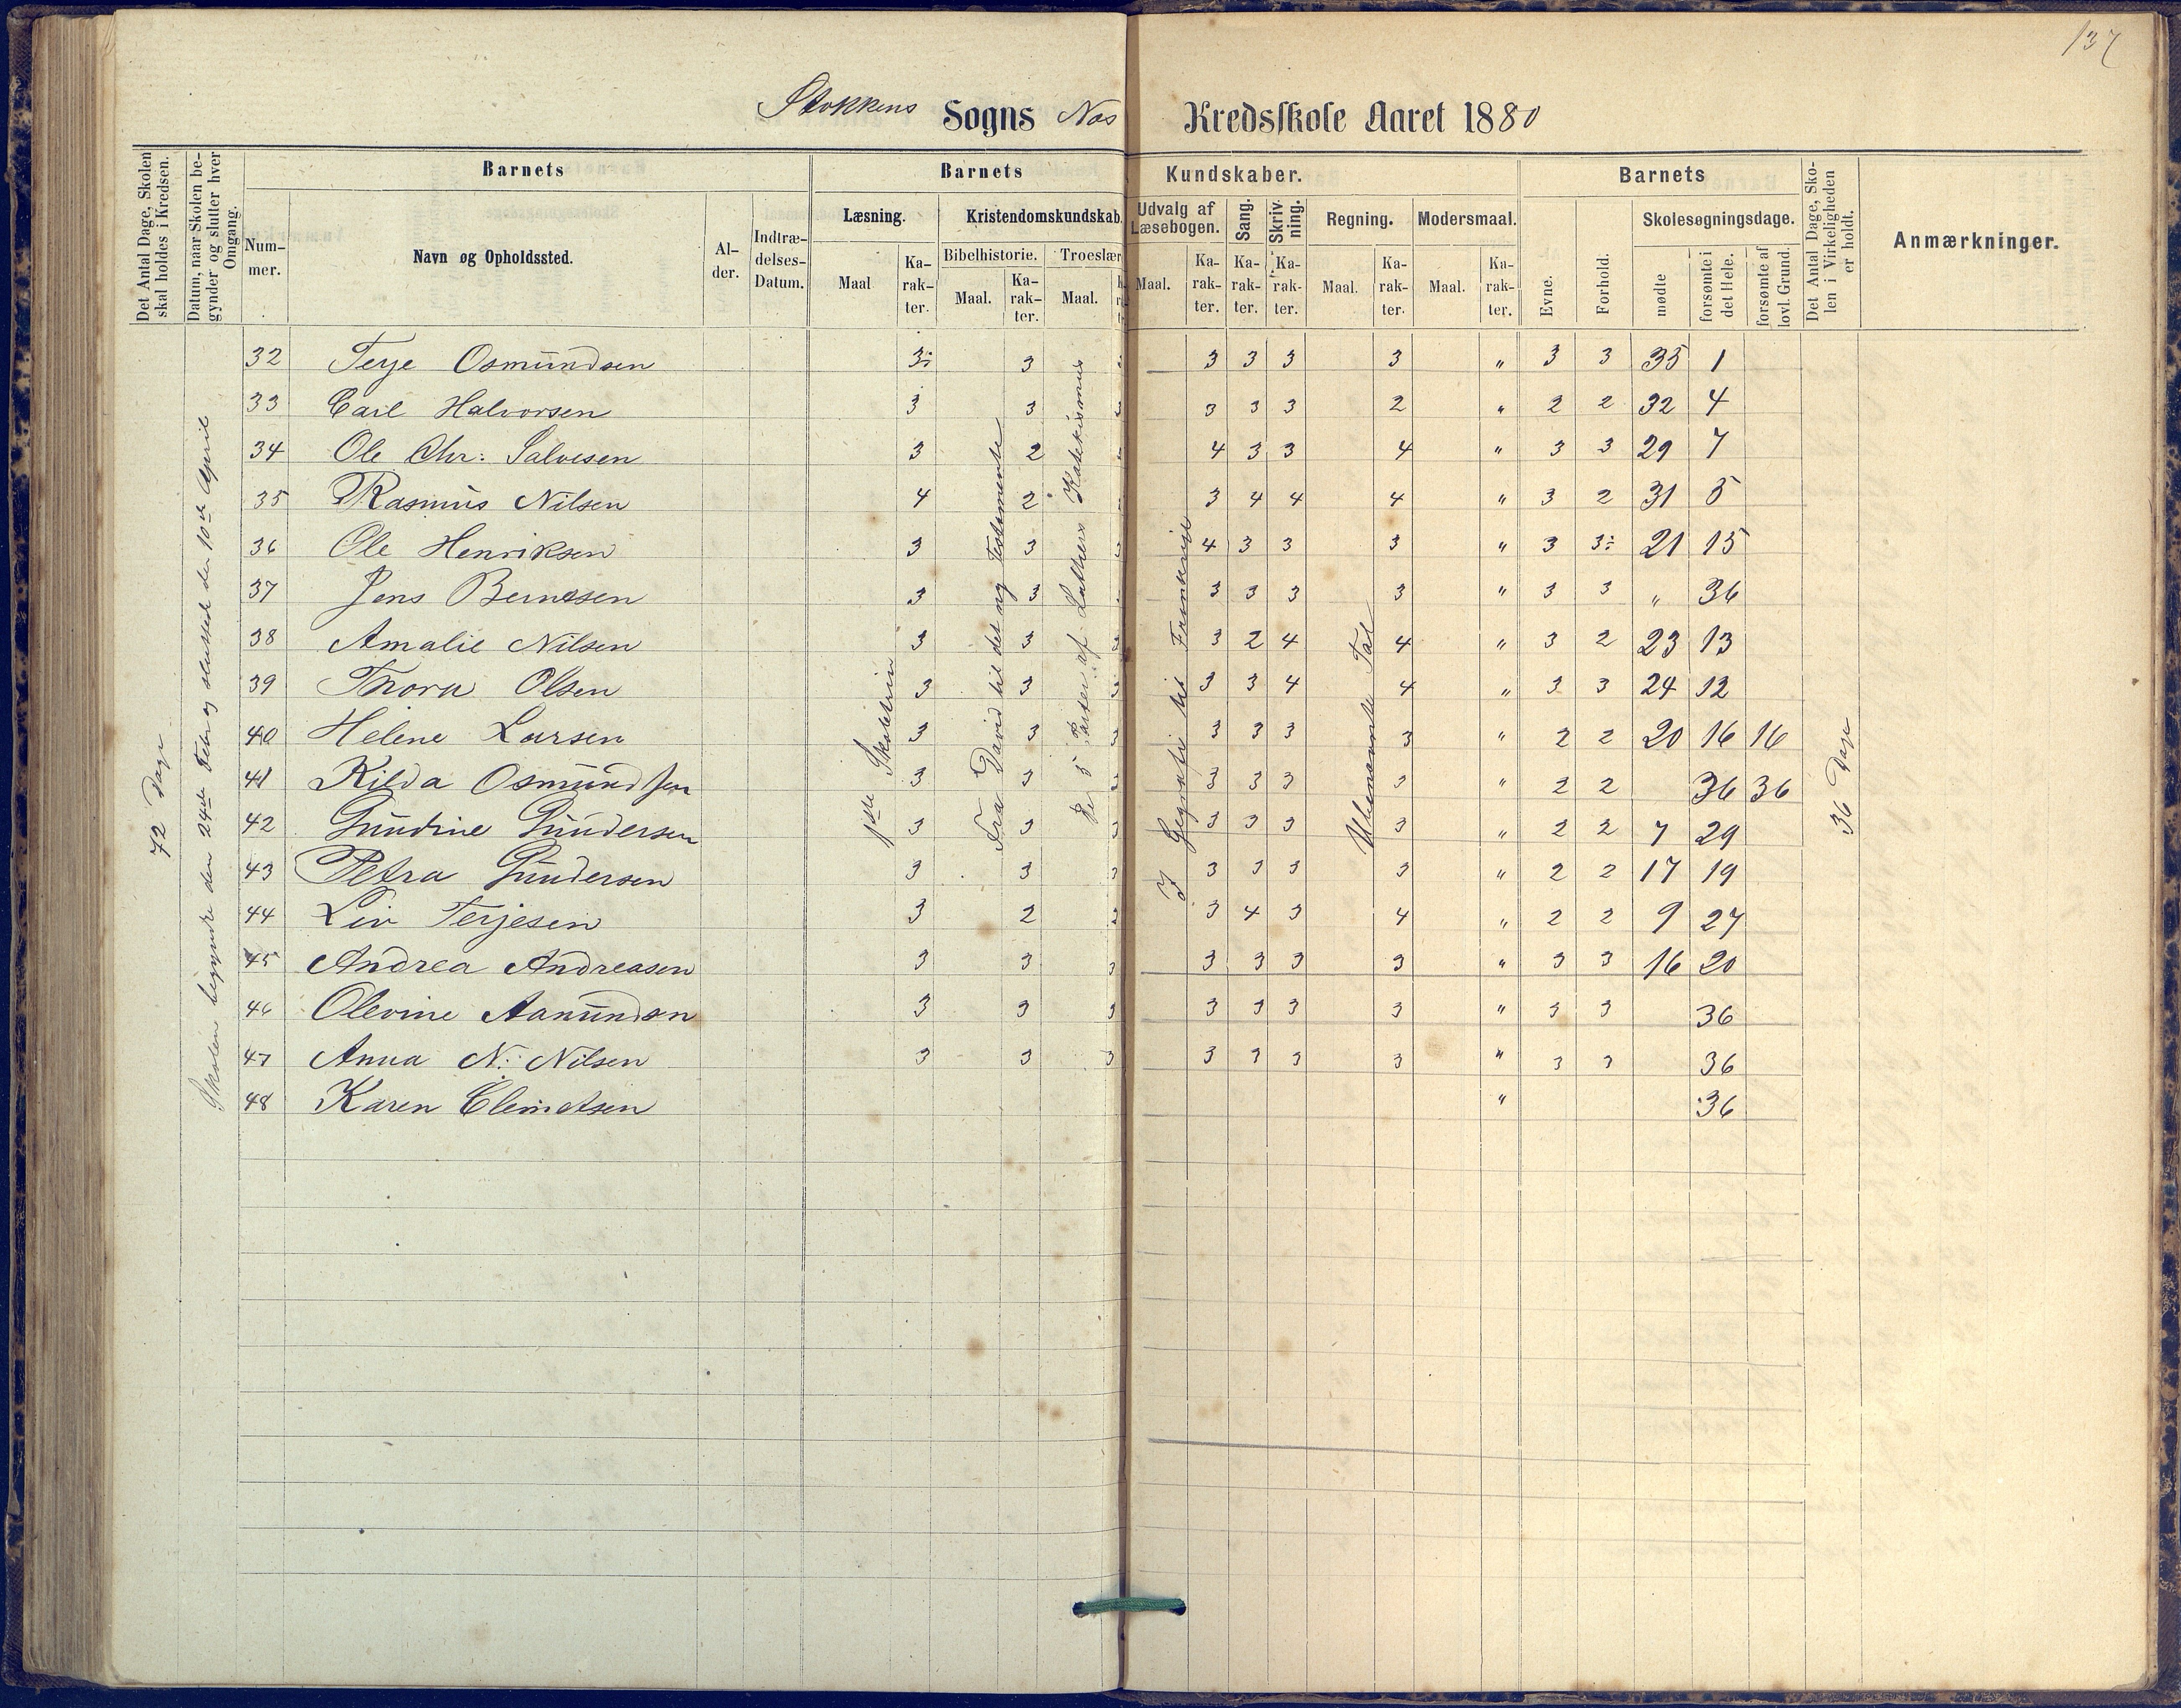 137
Stokkens Sogns Næs Kredsskole Aaret 1880
Det Antal Dage, Skolen skal holdes i Kredsen.
Datum, naar Skolen begynder og slutter hver Omgang.
Barnets
Nummer.
Navn og Opholdssted.
Alder.
Indtrædelses-Datum.
Barnets Kundskaber.
Læsning.
Maal
Karakter.
Kristendomskundskab.
Bibelhistorie.
Maal.
Karakter.
Troeslær
Maal.
Udvalg af Læsebogen.
Maal.
Karakter.
Sang.
Karakter.
Skrivning.
Karakter.
Regning.
Maal.
Karakter.
Modersmaal.
Maal.
Karakter.
Barnets
Evne.
Forhold.
Skolesøgningsdage.
mødte
forsømte i det Hele.
forsømte af lovl. Grund.
Det Antal Dage, Skolen i Virkeligheden er holdt.
Anmærkninger.
72 Dage
Skolen begyndte den 24de Febr og sluttede den 10de April
1ste Skoletrin
Fra David til det ny Testamente
De 5 Parter af Luthers Katekismus
I Geografi til Frankrige
Ubenævnte Tal
36 Dage
32 Terje Osmundsen 3÷ 3 3 3 3 3 " 3 3 35 1
33 Carl Halvorsen 3 3 3 3 3 2 " 2 2 32 4
34 Ole Chr: Salvesen 3 2 4 3 3 4 " 3 3 29 7
35 Rasmus Nilsen 4 2 3 4 4 4 " 3 2 31 5
36 Ole Henriksen 3 3 4 3 3 3 " 3 3÷ 21 15
37 Jens Bernesen 3 3 3 3 3 3 " 3 3 " 36
38 Amalie Nilsen 3 3 3 2 4 4 " 3 2 23 13
39 Thora Olsen 3 3 3 3 3 4 4 " 3 3 24 12
40 Helene Larsen 3 3 3 3 3 3 3 " 2 2 20 16 16
41 Kilda Osmundsen 3 3 3 3 3 3 3 " 2 2 36 36
42 Gundine Gundersen 3 3 3 3 3 3 3 " 2 2 7 29
43 Petra Gundersen 3 3 3 3 3 3 3 " 2 2 17 19
44 Liv Terjesen 3 2 3 3 4 3 4 " 2 2 9 27
45 Andrea Andreasen 3 3 3 3 3 3 3 " 3 3 16 20
46 Olevine Aanundsen 3 3 3 3 3 3 3 " 3 3 36
47 Anna N. Nilsen 3 3 3 3 3 3 3 " 3 3 36
48 Karen Clemetsen " 36